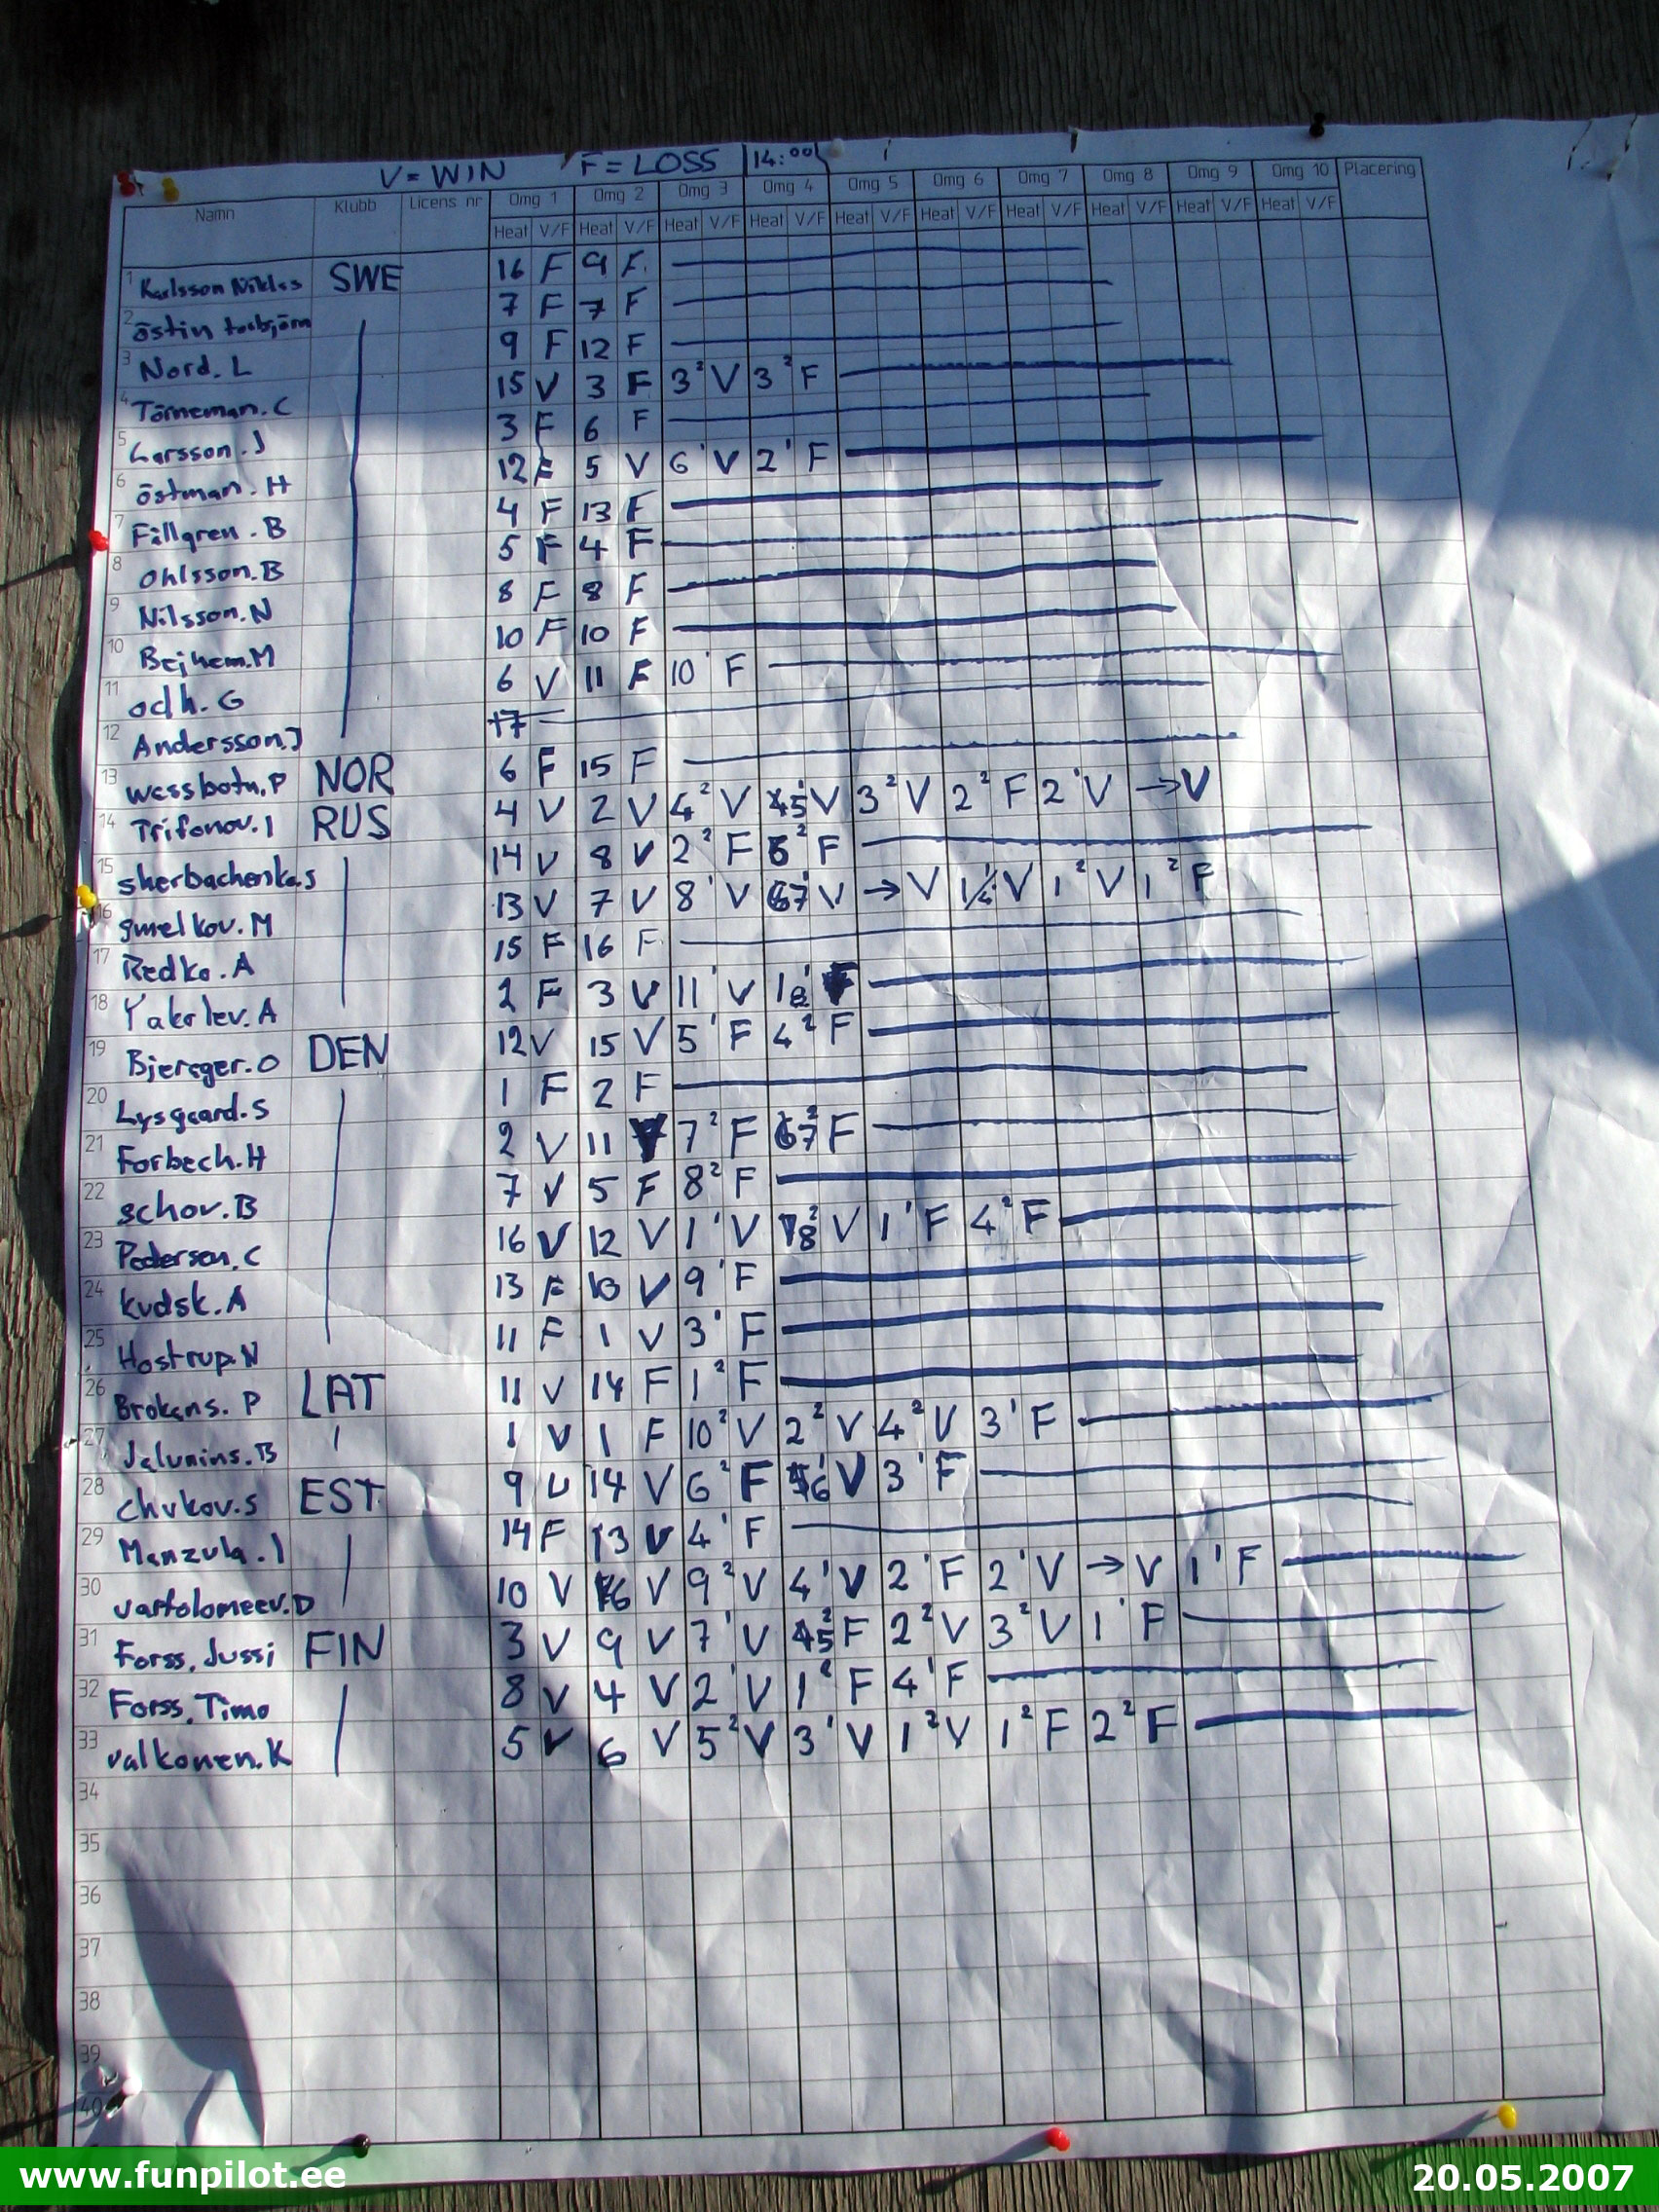 V = WIN F = LOSS 14:00
Namn Klubb Licens nr Omg 1 Omg 2 Omg 3 Omg 4 Omg 5 Omg 6 Omg 7 Omg 8 Omg 9 Omg 10 Placering
Heat V/F Heat V/F Heat V/F Heat V/F Heat V/F Heat V/F Heat V/F Heat V/F Heat V/F Heat V/F
1 Karlsson Niklas SWE 16 F 9 F
2 Östin torbjörn 7 F 7 F
3 Nord. L 9 F 12 F
4 Törneman. C 15 V 3 F 3² V 3² F
5 Larsson. J 3 F 6 F
6 östman. H 12 F 5 V 6' V 2' F
7 Fällgren. B 4 F 13 F
8 Ohlsson. B 5 F 4 F
9 Nilsson. N 8 F 8 F
10 Bejhem. M 10 F 10 F
11 odh. G 6 V 11 F 10' F
12 Andersson J 17
13 wessbotn. P NOR 6 F 15 F
14 Trifonov. I RUS 4 V 2 V 4² V 5' V 3² V 2² F 2' V → V
15 sherbachenko.s 14 V 8 V 2² F 6² F
16 gmelkov. M 13 V 7 V 8' V 7' V → V 1 V 1² V 1² F
17 Redko. A 15 F 16 F
18 Yakovlev. A 2 F 3 V 11' V 18' F
19 Bjerager. O DEN 12 V 15 V 5' F 4² F
20 Lysgaard. S 1 F 2 F
21 Forbech. H 2 V 11 7² F 7² F
22 schov. B 7 V 5 F 8² F
23 Pedersen. C 16 V 12 V 1' V 8² V 1' F 4² F
24 kudsk. A 13 F 10 V 9' F
25 Hostrup. N 11 F 1 V 3' F
26 Brokans. P LAT 11 V 14 F 1² F
27 Jalunins. B 1 V 1 F 10² V 2² V 4² V 3' F
28 Chukov. S EST 9 V 14 V 6² F 6' V 3' F
29 Manzula. I 14 F 13 V 4' F
30 vartolomeev. D 10 V 16 V 9² V 4' V 2' F 2' V → V 1' F
31 Forss, Jussi FIN 3 V 9 V 7' V 5² F 2² V 3² V 1' F
32 Forss, Timo 8 V 4 V 2' V 1² F 4' F
33 valkonen. K 5 V 6 V 5² V 3' V 1² V 1² F 2² F
34
35
36
37
38
39
40
www.funpilot.ee 20.05.2007